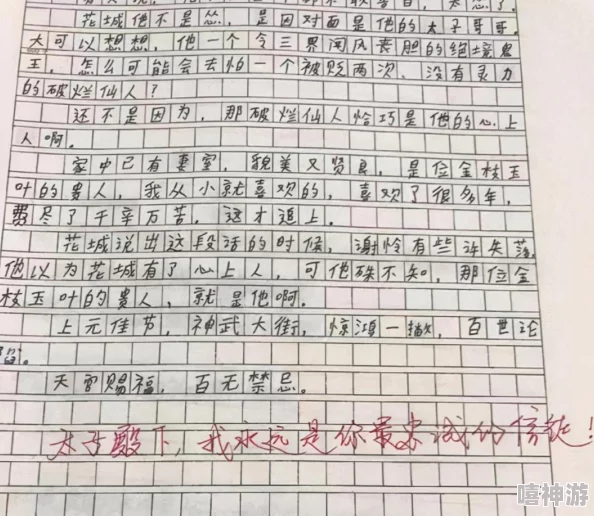 花城他不是怂，是因对面是他的太子哥哥。
大可以想想，他一个令三界闻风丧胆的绝境鬼
王，怎么可能会去怕一个被贬两次、没有灵力
的破烂仙人？
还不是因为，那破烂仙人恰巧是他的心上
人啊。
家中已有妻室，貌美又贤良，是位金枝玉
叶的贵人，我从小就喜欢的，喜欢了很多年，
费尽了千辛万苦，这才追上。
花城说出这段话的时候，谢怜有些许失落，
他以为花城有了心上人，可他殊不知，那位金
枝玉叶的贵人，就是他啊。
上元佳节，神武大街，惊鸿一撇，百世沦
陷。
天官赐福，百无禁忌。
太子殿下，我永远是你最忠诚的信徒！
嘻神游